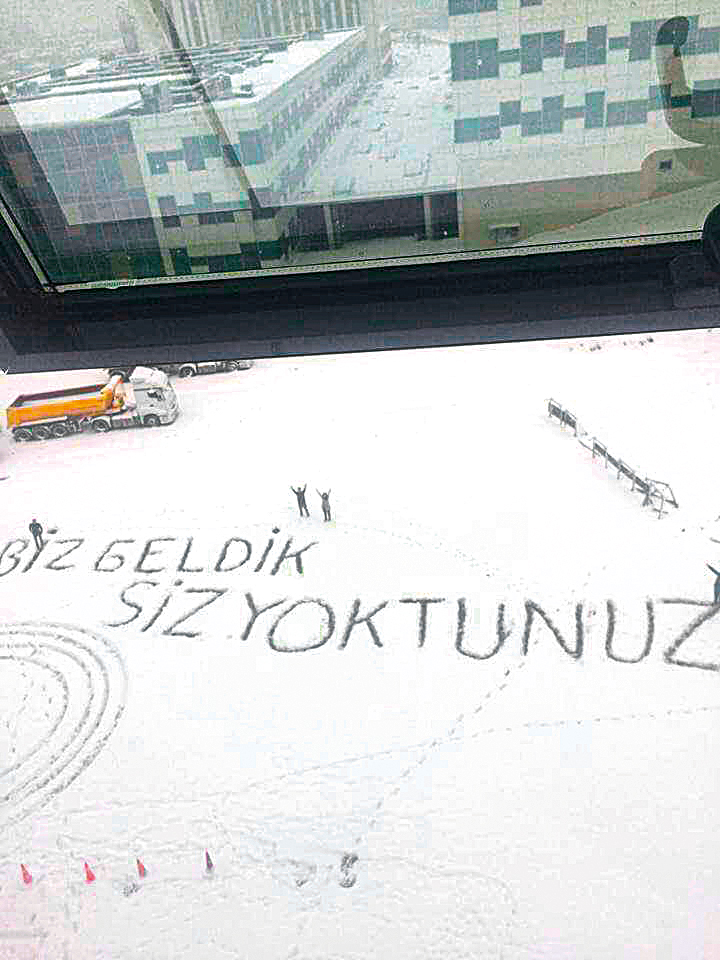 BİZ GELDİK
SİZ YOKTUNUZ